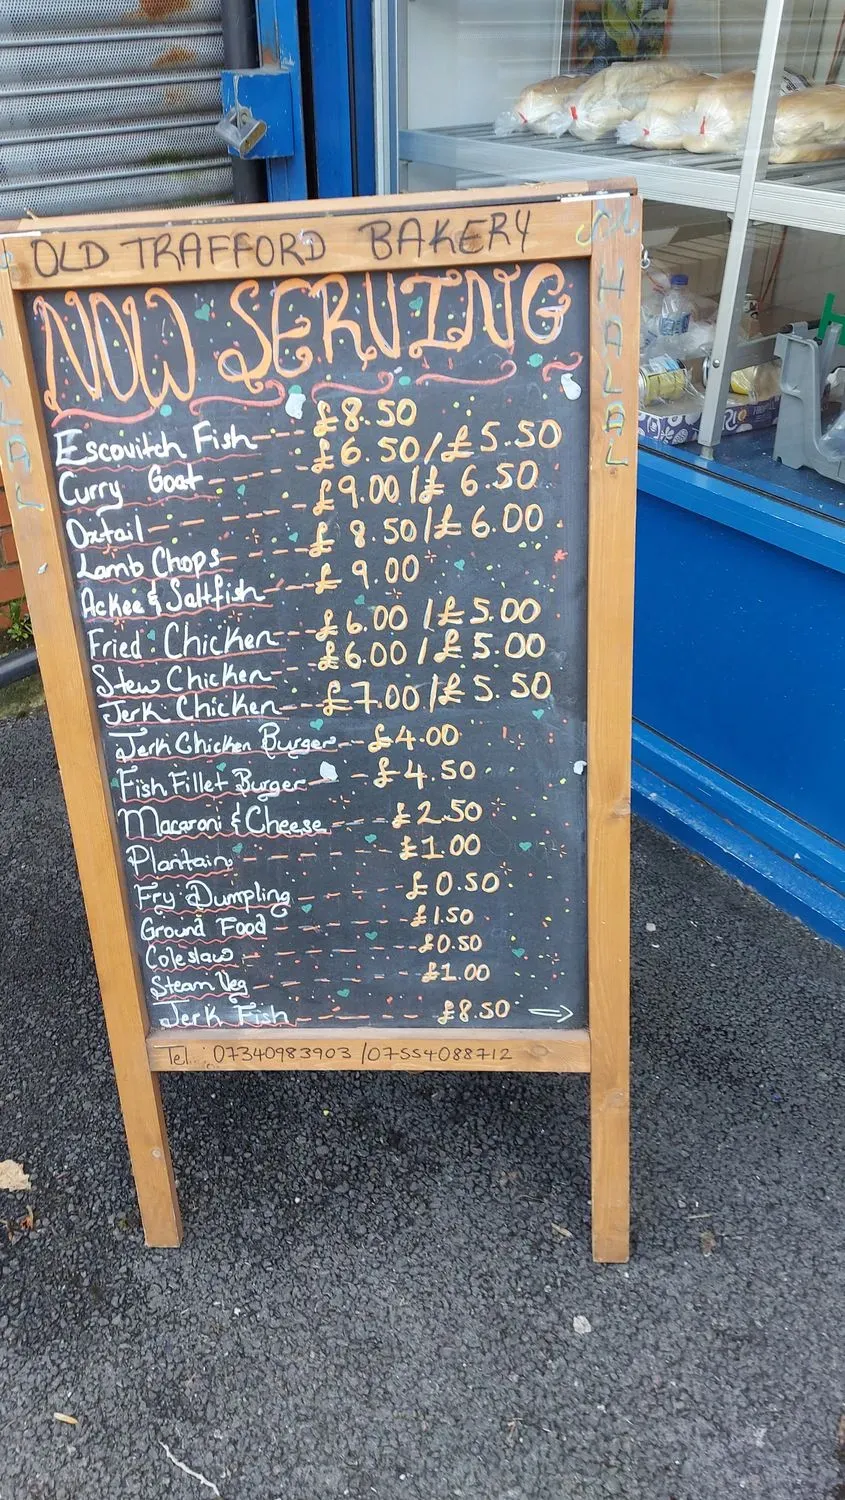 OLD TRAFFORD BAKERY
NOW SERVING
Escovitch Fish £8.50
Curry Goat £6.50/£5.50
Oxtail £9.00/£6.50
Lamb Chops £8.50/£6.00
Ackee & Saltfish £9.00
Fried Chicken £6.00/£5.00
Stew Chicken £6.00/£5.00
Jerk Chicken £7.00/£5.50
Jerk Chicken Burger £4.00
Fish Fillet Burger £4.50
Macaroni & Cheese £2.50
Plantain £1.00
Fry Dumpling £0.50
Ground Food £1.50
Coleslaw £0.50
Steam Veg £1.00
Jerk Fish £8.50
Tel.: 07340983903 /07554088712
HALAL
HALAL